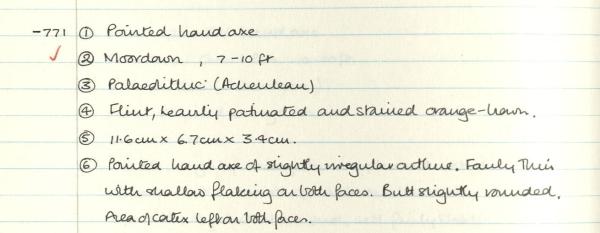 -771 ① Pointed hand axe
✓ ② Moordown, 7-10 ft
③ Palaeolithic (Acheulean)
④ Flint, heavily patinated and stained orange-brown.
⑤ 11.6cm x 6.7cm x 3.4cm.
⑥ Pointed hand axe of slightly irregular outline. Fairly thin
with shallow flaking on both faces. Butt slightly rounded.
Area of cortex left on both faces.